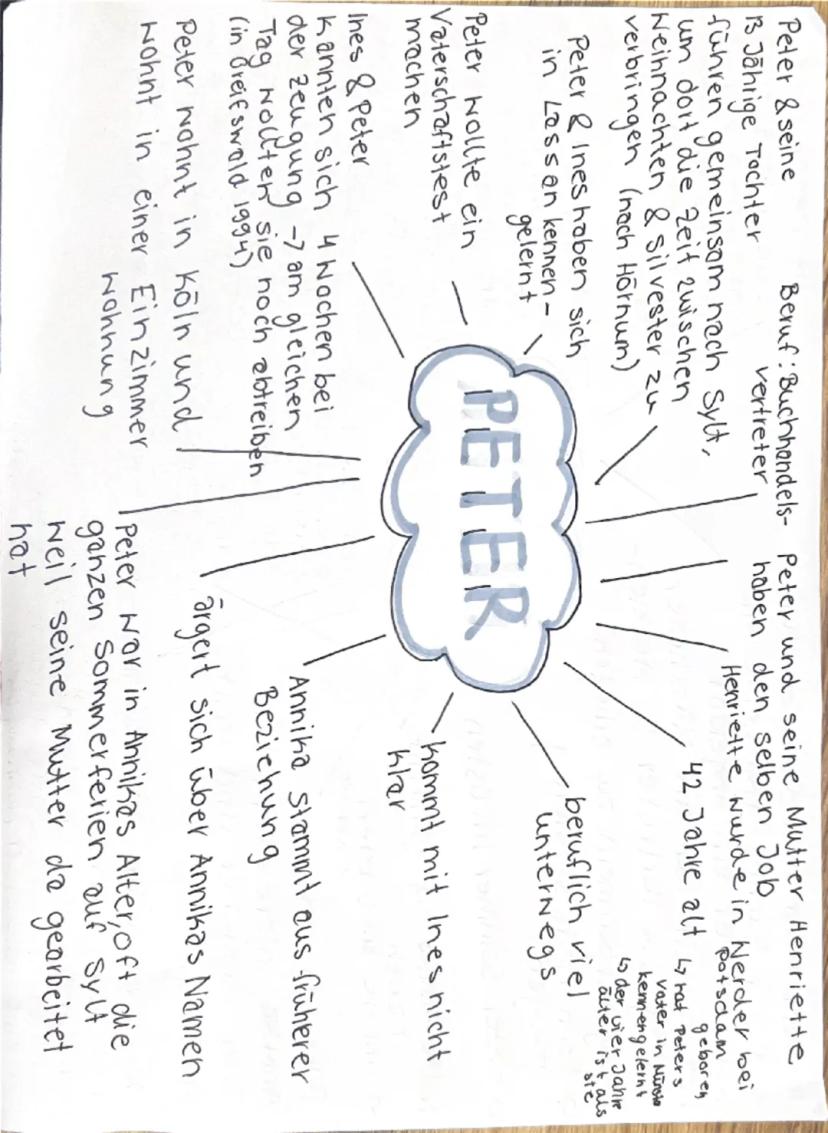 Peter & seine
13 Jährige Tochter
führen gemeinsam nach Sylt,
um dort die Zeit zwischen
Weihnachten & Silvester zu
verbringen (nach Hörnum)
Beruf: Buchhandels-
vertreter
Peter und seine Mutter Henriette
haben den selben Job
Henriette wurde in Werder bei
Potsdam
geboren
↳ hat Peters
vater in
kennengelernt
↳ der vier Jahre
älter ist als
sie
42 Jahre alt
beruflich viel
unterwegs
kommt mit Ines nicht
klar
Annika stammt aus früherer
Beziehung
ärgert sich über Annikas Namen
Peter war in Annikas Alter, oft die
ganzen Sommerferien auf Sylt
weil seine Mutter da gearbeitet
hat
Peter wohnt in Köln und
wohnt in einer Einzimmer
wohnung
Ines & Peter
kannten sich 4 Wochen bei
der Zeugung -> am gleichen
Tag wollten sie noch abtreiben
(in Greifswald 1994)
Peter wollte ein
Vaterschaftstest
machen
Peter & Ines haben sich
in Lassan kennen-
gelernt
PETER